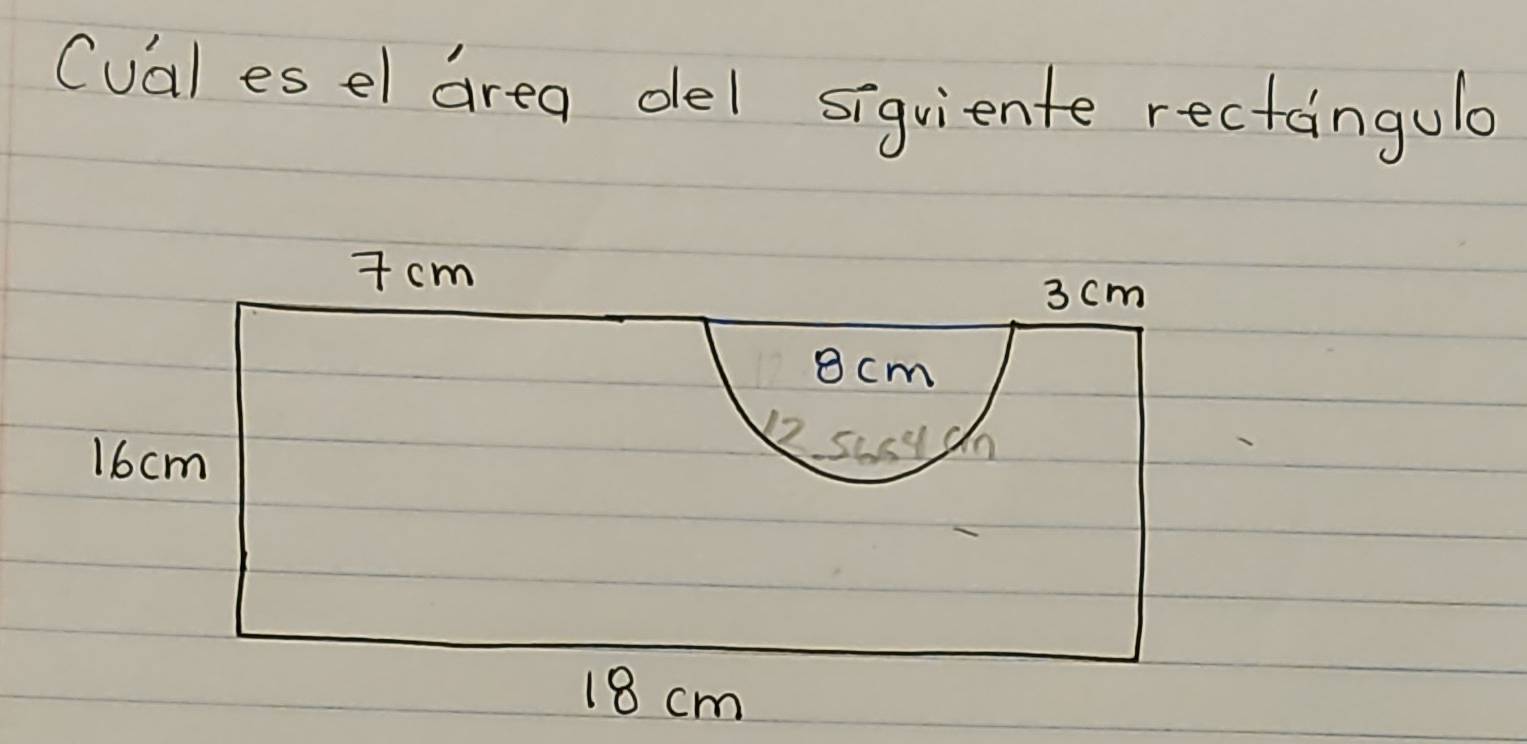 Cuál es el área del siguiente rectángulo
7cm
3cm
8cm
16cm
18 cm